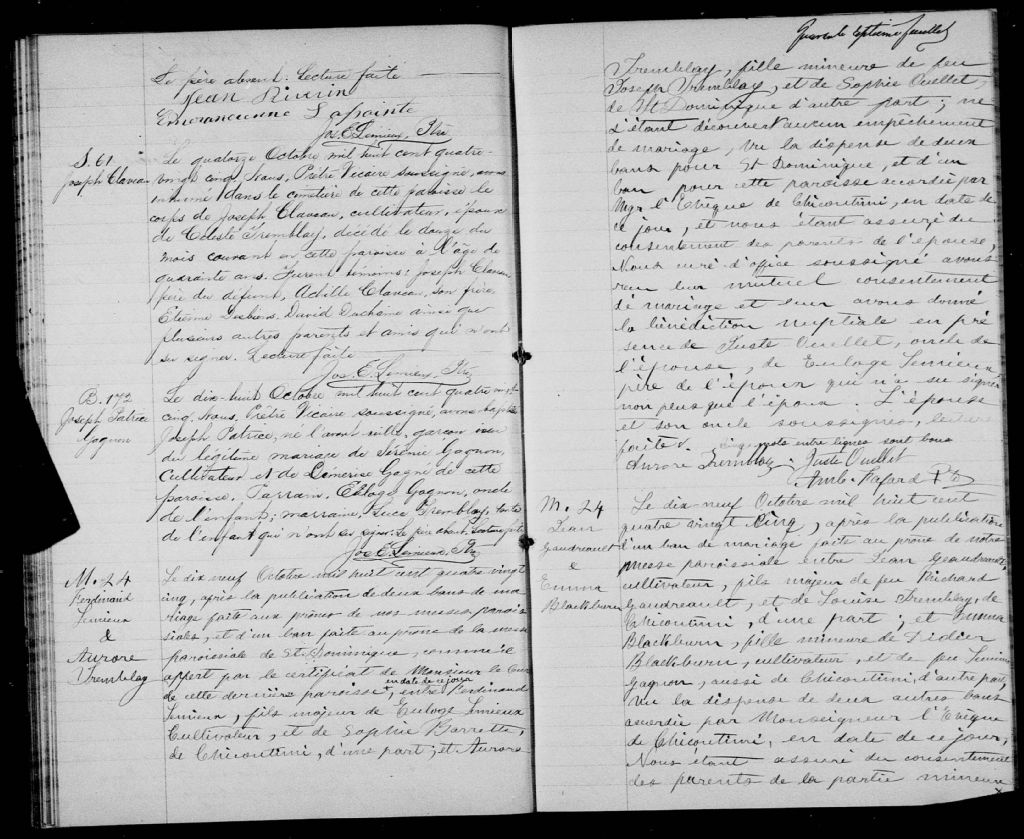 Le père absent. Lecture faite
Jean Riverin
Emerancienne Lapointe
Jos. E. Lemieux, Ptre
S. 61
Joseph Claveau
Le quatorze Octobre mil huit cent quatre-
vingt cinq, Nous, Prêtre Vicaire soussigné, avons
inhumé dans le cimetière de cette paroisse le
corps de Joseph Claveau, cultivateur, époux
de Céleste Tremblay, décédé le douze du
mois courant en cette paroisse à l'âge de
quarante ans. Furent témoins: Joseph Claveau
père du défunt, Achille Claveau, son frère
Etienne Desbiens, David Duchaine ainsi que
plusieurs autres parents et amis qui n'ont
su signer. Lecture faite
Jos. E. Lemieux, Ptre
B. 172
Joseph Patrice
Gagnon
Le dix-huit Octobre mil huit cent quatre vingt
cinq, Nous, Prêtre Vicaire soussigné, avons baptisé
Joseph Patrice, né l'avant veille, garçon issu
du légitime mariage de Jérémie Gagnon,
Cultivateur et de Démerise Gagné de cette
paroisse. Parrain, Eloge Gagnon, oncle
de l'enfant; marraine, Luce Tremblay, tante
de l'enfant qui n'ont su signer. Le père absent. Lecture faite
Jos. E. Lemieux, Ptre
M. 24
Ferdinand
Lemieux
&
Aurore
Tremblay
Le dix neuf Octobre mil huit cent quatre vingt
cinq, après la publication de deux bans de ma
riage faite aux prônes de nos messes parois
siales, et d'un ban faite au prône de la messe
paroissiale de St. Dominique, comme il
appert par le certificat de Monsieur le Curé
en date de ce jour
de cette dernière paroisse, entre Ferdinand
Lemieux, fils majeur de Euloge Lemieux
Cultivateur, et de Sophie Barrette,
de Chicoutimi, d'une part; et Aurore
Quarante septième feuillet
Tremblay, fille mineure de feu
Joseph Tremblay, et de Sophie Ouellet,
de St Dominique d'autre part; ne
s'étant découvert aucun empêchement
de mariage, Vu la dispense de deux
bans pour St Dominique, et d'un
ban pour cette paroisse accordée par
Mgr l'Evêque de Chicoutimi, en date de
ce jour, et nous étant assuré du
consentement des parents de l'épouse,
Nous curé d'office soussigné avons
reçu leur mutuel consentement
de mariage et leur avons donné
la bénédiction nuptiale en pré
sence de Juste Ouellet, oncle de
l'épouse, de Euloge Lemieux
père de l'époux qui n'a su signer
non plus que l'époux. L'épouse
et son oncle soussignés, lecture
faite. mots entre lignes sont bons
Aurore Tremblay. Juste Ouellet
Amb. Fafard Ptre
M. 24
Jean
Gaudreault
&
Emma
Blackburn
Le dix neuf Octobre mil huit cent
quatre vingt cinq, après la publication
d'un ban de mariage faite au prône de notre
messe paroissiale entre Jean Gaudreault
cultivateur, fils majeur de feu Richard
Gaudreault, et de Louise Tremblay, de
Chicoutimi, d'une part; et Emma
Blackburn, fille mineure de Didier
Blackburn, cultivateur, et de feu
Gagnon, aussi de Chicoutimi, d'autre part,
Vu la dispense de deux autres bans
accordée par Monseigneur l'Evêque
de Chicoutimi, en date de ce jour,
Nous étant assuré du consentement
des parents de la partie mineure